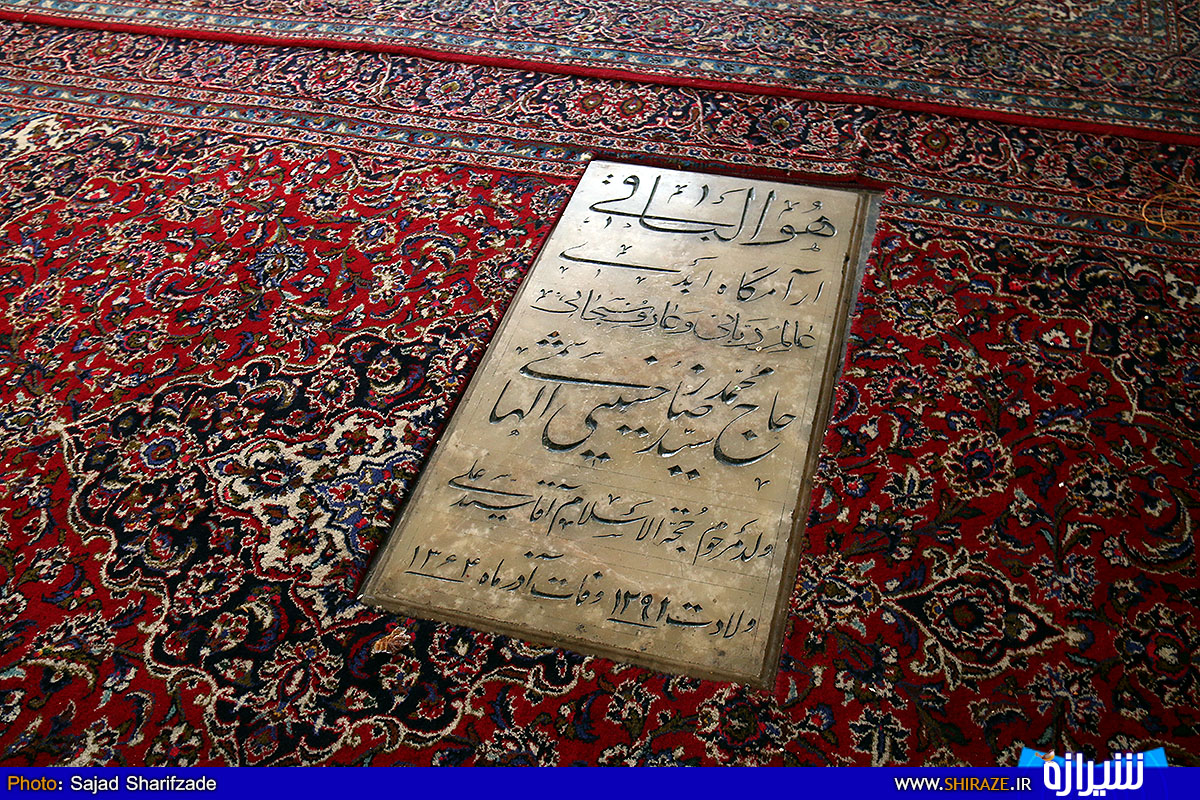 هُوَ الباقی
آرامگاه ابدی
عالم ربانی و عارف سبحانی
حاج سید محمد رضا حسینی الهاشمی
ولد مرحوم حجة الاسلام آقا سید علی
ولادت ۱۲۹۱ وفات آذر ماه ۱۳۶۴
Photo: Sajad Sharifzade
WWW.SHIRAZE.IR
شیرازه